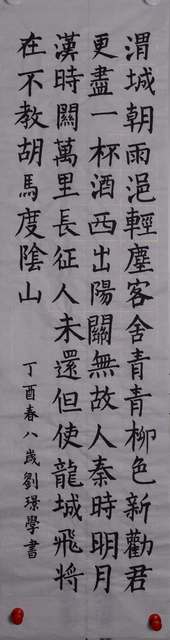 渭城朝雨浥輕塵客舍青青柳色新勸君
更盡一杯酒西出陽關無故人秦時明月
漢時關萬里長征人未還但使龍城飛將
在不教胡馬度陰山
丁酉春八歲劉璟學書